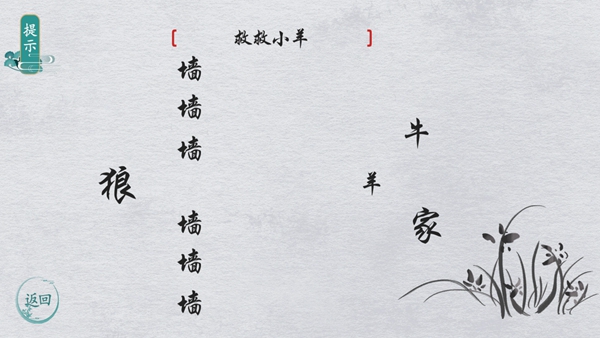 提示
救救小羊
墙
墙
墙
牛
狼
羊
墙
家
墙
墙
返回